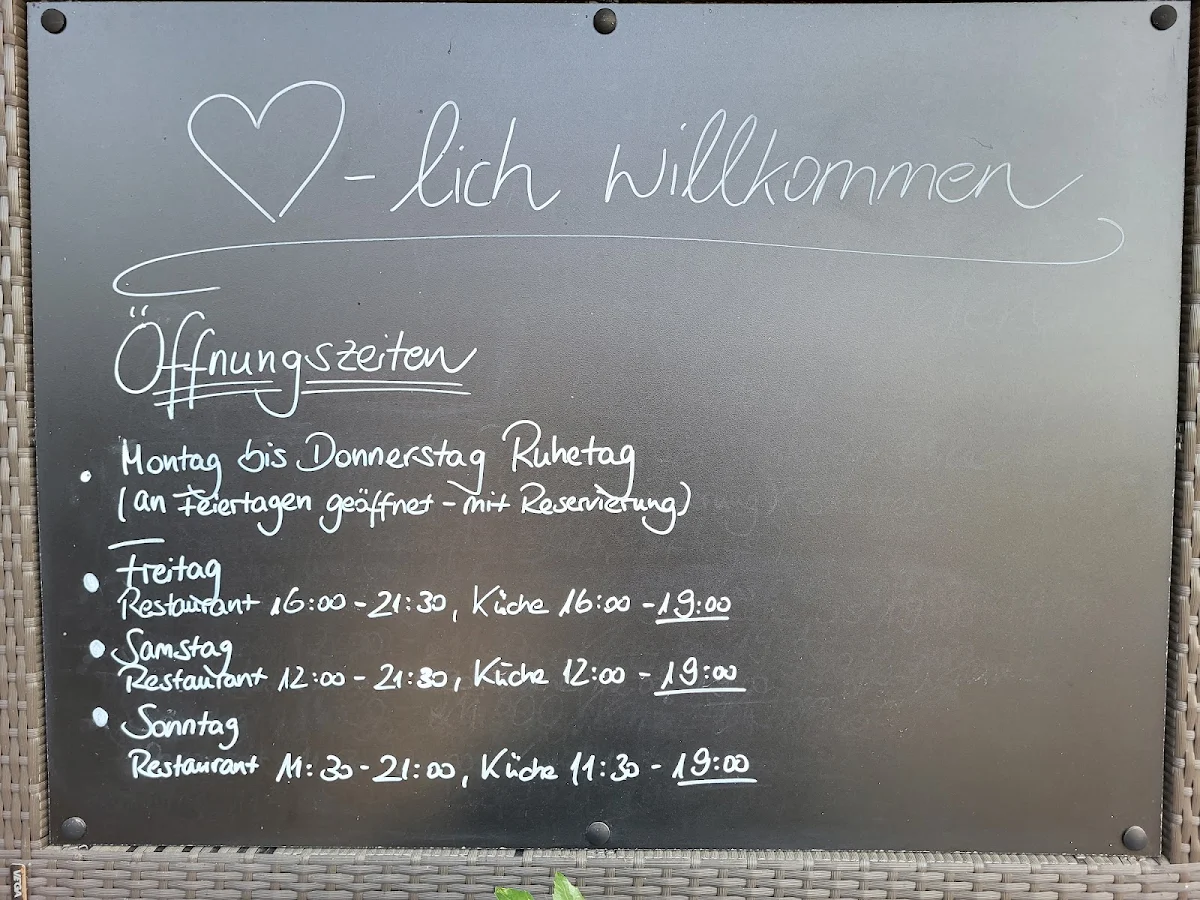 ♡-lich willkommen
Öffnungszeiten
• Montag bis Donnerstag Ruhetag
(an Feiertagen geäffnet - mit Reservierung)
• Freitag
Restaurant 16:00 - 21:30, Küche 16:00 - 19:00
• Samstag
Restaurant 12:00 - 21:30, Küche 12:00 - 19:00
• Sonntag
Restaurant 11:30 - 21:00, Küche 11:30 - 19:00
VEGA